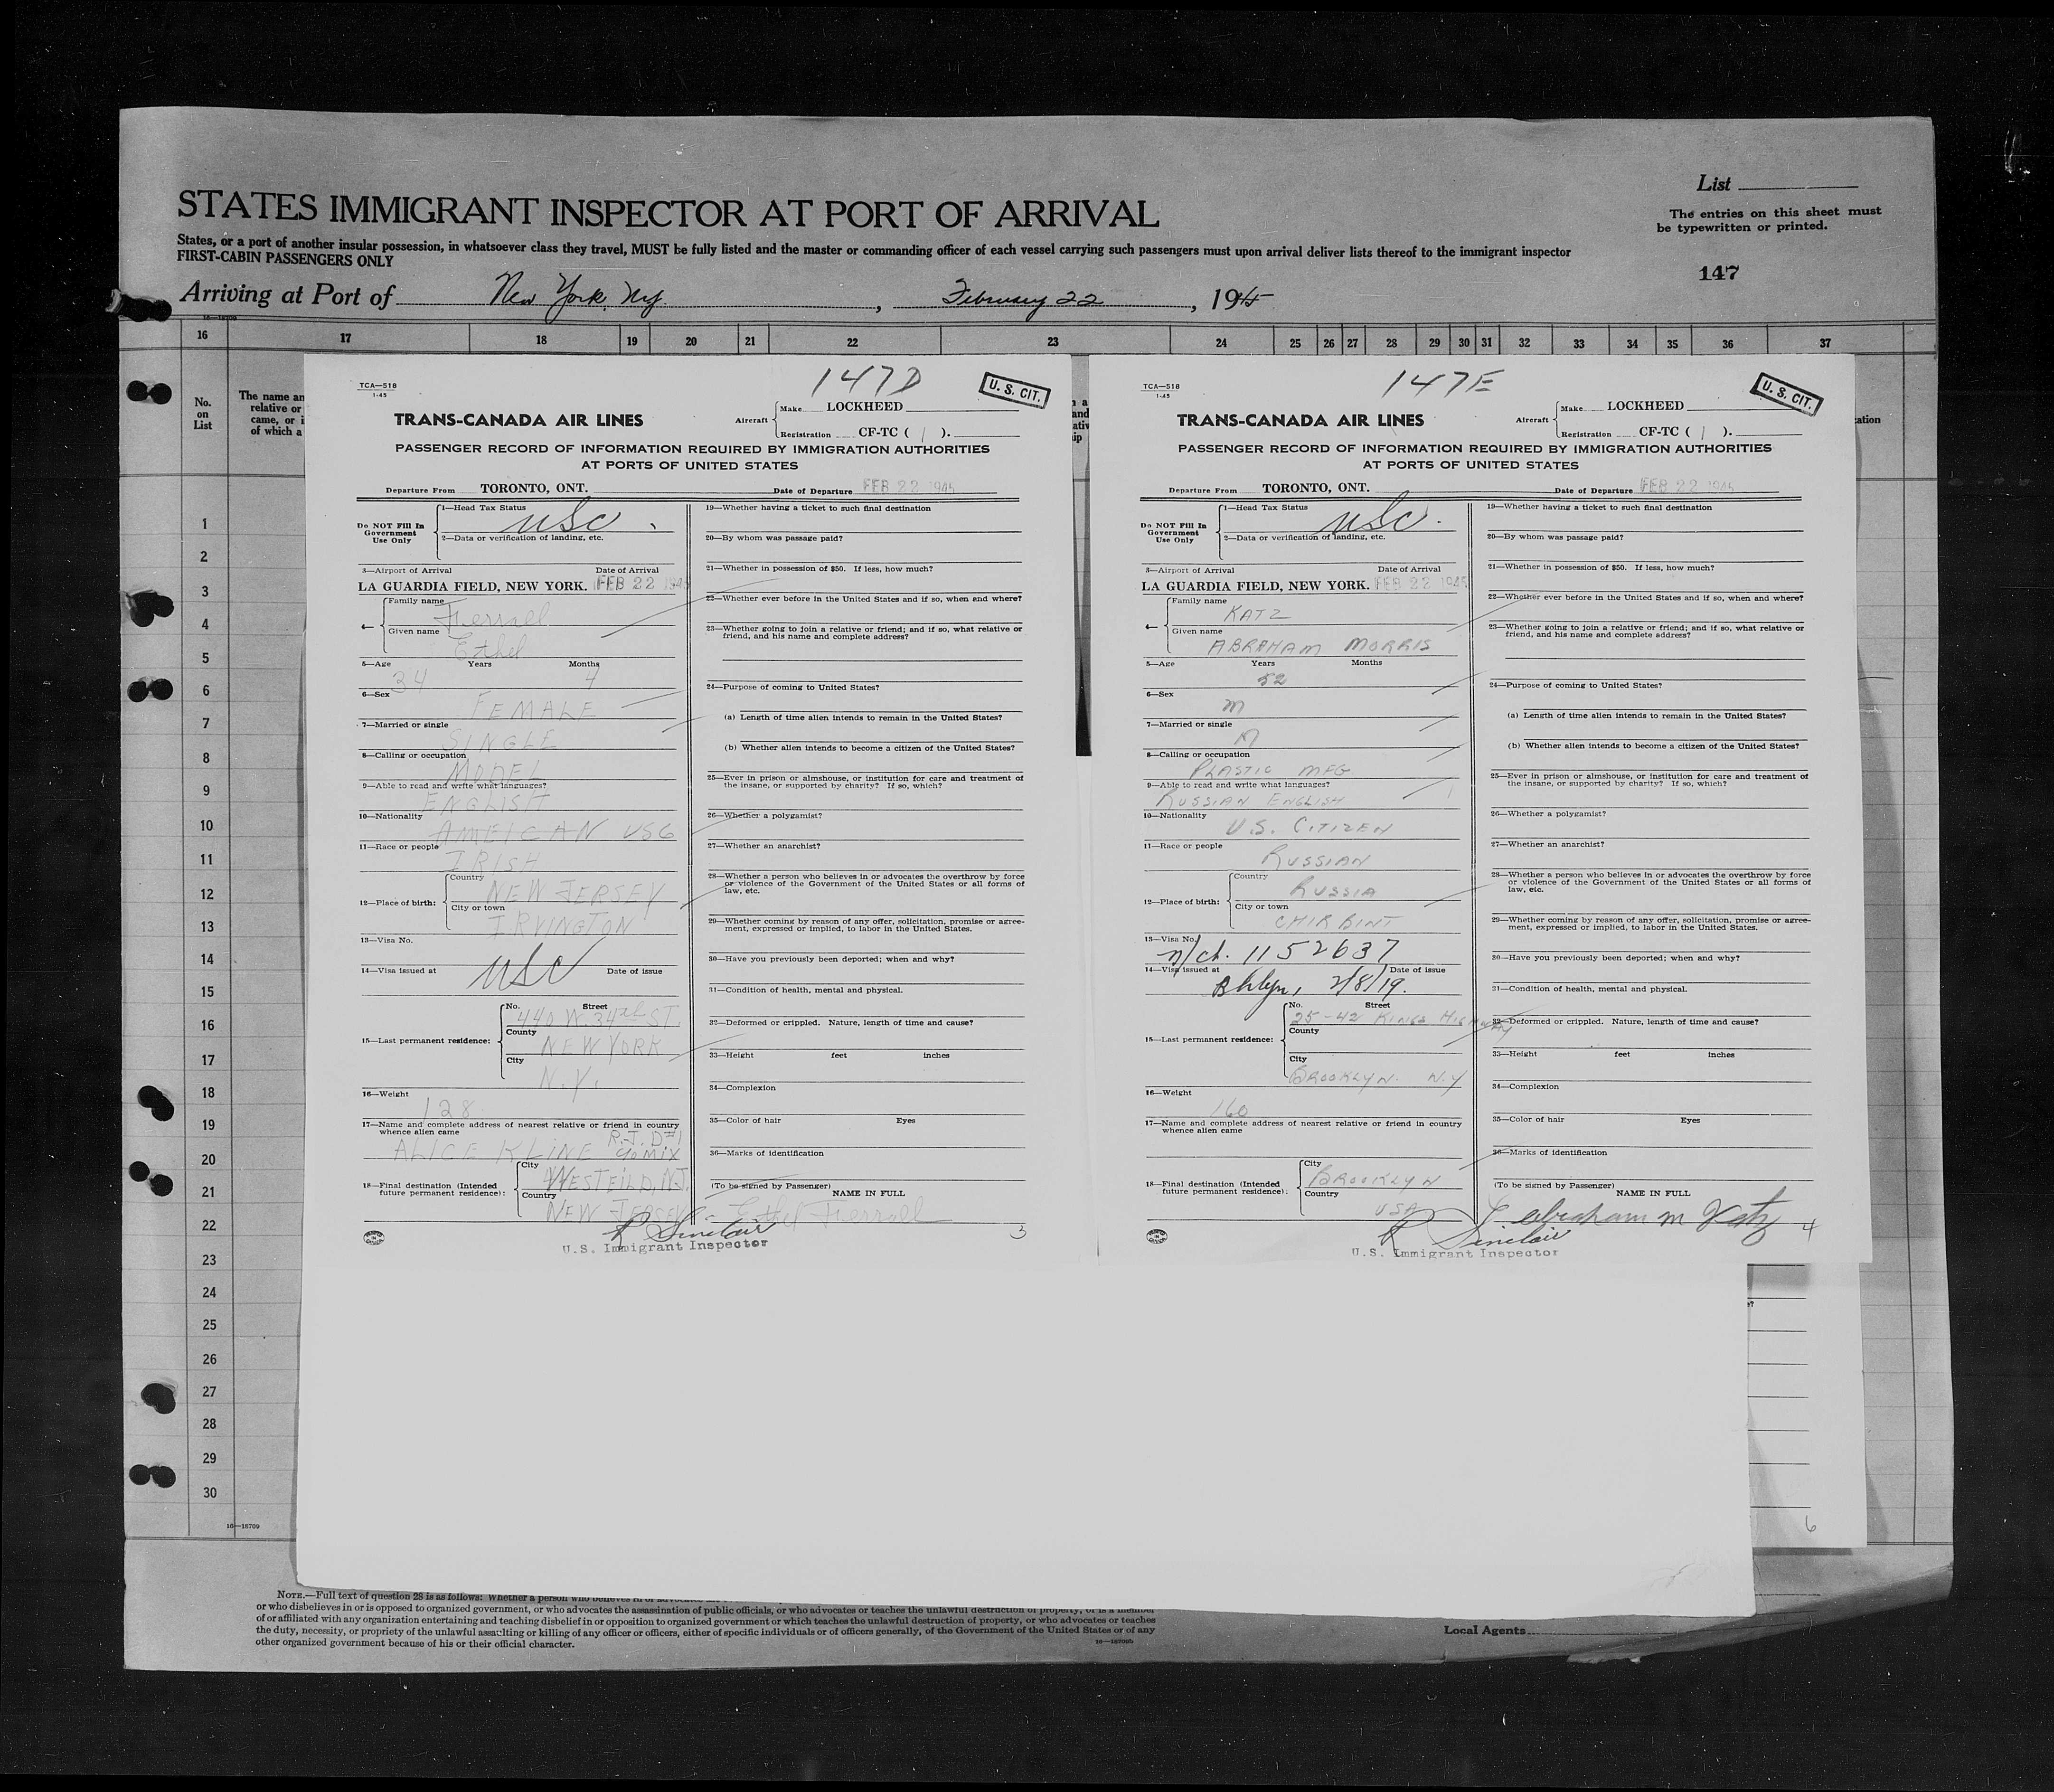 List
STATES IMMIGRANT INSPECTOR AT PORT OF ARRIVAL
The entries on this sheet must
be typewritten or printed.
States, or a port of another insular possession, in whatsoever class they travel, MUST be fully listed and the master or commanding officer of each vessel carrying such passengers must upon arrival deliver lists thereof to the immigrant inspector
FIRST-CABIN PASSENGERS ONLY
147
Arriving at Port of New York, Ny. , February 22 , 1945
16 17 18 19 20 21 22 23 24 25 26 27 28 29 30 31 32 33 34 35 36 37
No.
on
List
The name an
relative or
came, or i
of which a
1
2
3
4
5
6
7
8
9
10
11
12
13
14
15
16
17
18
19
20
21
22
23
24
25
26
27
28
29
30
16—18709
TCA—518
1-45
147D
U. S. CIT.
TRANS-CANADA AIR LINES
Aircraft
Make LOCKHEED
Registration CF-TC ( 1 ).
PASSENGER RECORD OF INFORMATION REQUIRED BY IMMIGRATION AUTHORITIES
AT PORTS OF UNITED STATES
Departure From TORONTO, ONT. Date of Departure FEB 22 1945
Do NOT Fill In
Government
Use Only
1—Head Tax Status
USC
2—Data or verification of landing, etc.
3—Airport of Arrival Date of Arrival
LA GUARDIA FIELD, NEW YORK. FEB 22 1945
4—
Family name
Given name
Ethel
5—Age Years Months
34 4
6—Sex
FEMALE
7—Married or single
SINGLE
8—Calling or occupation
MODEL
9—Able to read and write what languages?
ENGLISH
10—Nationality
AMEICAN USC
11—Race or people
IRISH
12—Place of birth:
Country
NEW JERSEY
City or town
IRVINGTON
13—Visa No.
USC
14—Visa issued at Date of issue
15—Last permanent residence:
No. Street
440 W. 34th ST.
County
NEW YORK
City
N.Y.
16—Weight
128
17—Name and complete address of nearest relative or friend in country
whence alien came
ALICE KLINE
18—Final destination (Intended
future permanent residence):
City
WESTEILD, N.J.
Country
NEW JERSEY
19—Whether having a ticket to such final destination
20—By whom was passage paid?
21—Whether in possession of $50. If less, how much?
22—Whether ever before in the United States and if so, when and where?
23—Whether going to join a relative or friend; and if so, what relative or
friend, and his name and complete address?
24—Purpose of coming to United States?
(a) Length of time alien intends to remain in the United States?
(b) Whether alien intends to become a citizen of the United States?
25—Ever in prison or almshouse, or institution for care and treatment of
the insane, or supported by charity? If so, which?
26—Whether a polygamist?
27—Whether an anarchist?
28—Whether a person who believes in or advocates the overthrow by force
or violence of the Government of the United States or all forms of
law, etc.
29—Whether coming by reason of any offer, solicitation, promise or agree-
ment, expressed or implied, to labor in the United States.
30—Have you previously been deported; when and why?
31—Condition of health, mental and physical.
32—Deformed or crippled. Nature, length of time and cause?
33—Height feet inches
34—Complexion
35—Color of hair Eyes
36—Marks of identification
(To be signed by Passenger)
NAME IN FULL
Ethel
R Sinclair
U.S. Immigrant Inspector
3
TCA—518
1-45
147E
U. S. CIT.
TRANS-CANADA AIR LINES
Aircraft
Make LOCKHEED
Registration CF-TC ( 1 ).
PASSENGER RECORD OF INFORMATION REQUIRED BY IMMIGRATION AUTHORITIES
AT PORTS OF UNITED STATES
Departure From TORONTO, ONT. Date of Departure FEB 22 1945
Do NOT Fill In
Government
Use Only
1—Head Tax Status
USC
2—Data or verification of landing, etc.
3—Airport of Arrival Date of Arrival
LA GUARDIA FIELD, NEW YORK. FEB 22 1945
4—
Family name
KATZ
Given name
ABRAHAM MORRIS
5—Age Years Months
52
6—Sex
M
7—Married or single
M
8—Calling or occupation
PLASTIC MFG
9—Able to read and write what languages?
RUSSIAN ENGLISH
10—Nationality
U.S. CITIZEN
11—Race or people
RUSSIAN
12—Place of birth:
Country
RUSSIA
City or town
CHIRBINT
13—Visa No.
n/ct. 1152637
14—Visa issued at Date of issue
Bklyn, 2/8/19.
15—Last permanent residence:
No. Street
25-42 KINGS HIGHWAY
County
City
BROOKLYN. N.Y
16—Weight
160
17—Name and complete address of nearest relative or friend in country
whence alien came
18—Final destination (Intended
future permanent residence):
City
BROOKLYN
Country
USA
19—Whether having a ticket to such final destination
20—By whom was passage paid?
21—Whether in possession of $50. If less, how much?
22—Whether ever before in the United States and if so, when and where?
23—Whether going to join a relative or friend; and if so, what relative or
friend, and his name and complete address?
24—Purpose of coming to United States?
(a) Length of time alien intends to remain in the United States?
(b) Whether alien intends to become a citizen of the United States?
25—Ever in prison or almshouse, or institution for care and treatment of
the insane, or supported by charity? If so, which?
26—Whether a polygamist?
27—Whether an anarchist?
28—Whether a person who believes in or advocates the overthrow by force
or violence of the Government of the United States or all forms of
law, etc.
29—Whether coming by reason of any offer, solicitation, promise or agree-
ment, expressed or implied, to labor in the United States.
30—Have you previously been deported; when and why?
31—Condition of health, mental and physical.
32—Deformed or crippled. Nature, length of time and cause?
33—Height feet inches
34—Complexion
35—Color of hair Eyes
36—Marks of identification
(To be signed by Passenger)
NAME IN FULL
Abraham M Katz
R Sinclair
U.S. Immigrant Inspector
4
6
NOTE.—Full text of question 28 is as follows: Whether a person who believes in
or who disbelieves in or is opposed to organized government, or who advocates the assassination of public officials, or who advocates or teaches the unlawful destruction of property, or is a member
of or affiliated with any organization entertaining and teaching disbelief in or opposition to organized government or which teaches the unlawful destruction of property, or who advocates or teaches
the duty, necessity, or propriety of the unlawful assaulting or killing of any officer or officers, either of specific individuals or of officers generally, of the Government of the United States or of any
other organized government because of his or their official character.
Local Agents